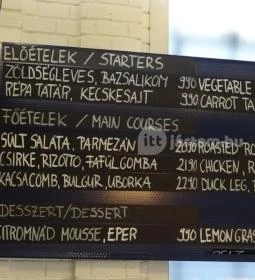 ELŐÉTELEK / STARTERS
ZÖLDSÉGLEVES, BAZSALIKOM 990 VEGETABLE
RÉPA TATÁR, KECSKESAJT 990 CARROT TA
FŐÉTELEK / MAIN COURSES
SÜLT SALÁTA, PARMEZÁN 2090 ROASTED RO
CSIRKE, RIZOTTÓ, FAFÜLGOMBA 2190 CHICKEN, R
KACSACOMB, BULGUR, UBORKA 2290 DUCK LEG,
DESSZERT/DESSERT
CITROMNÁD MOUSSE, EPER 990 LEMON GRAS
itt